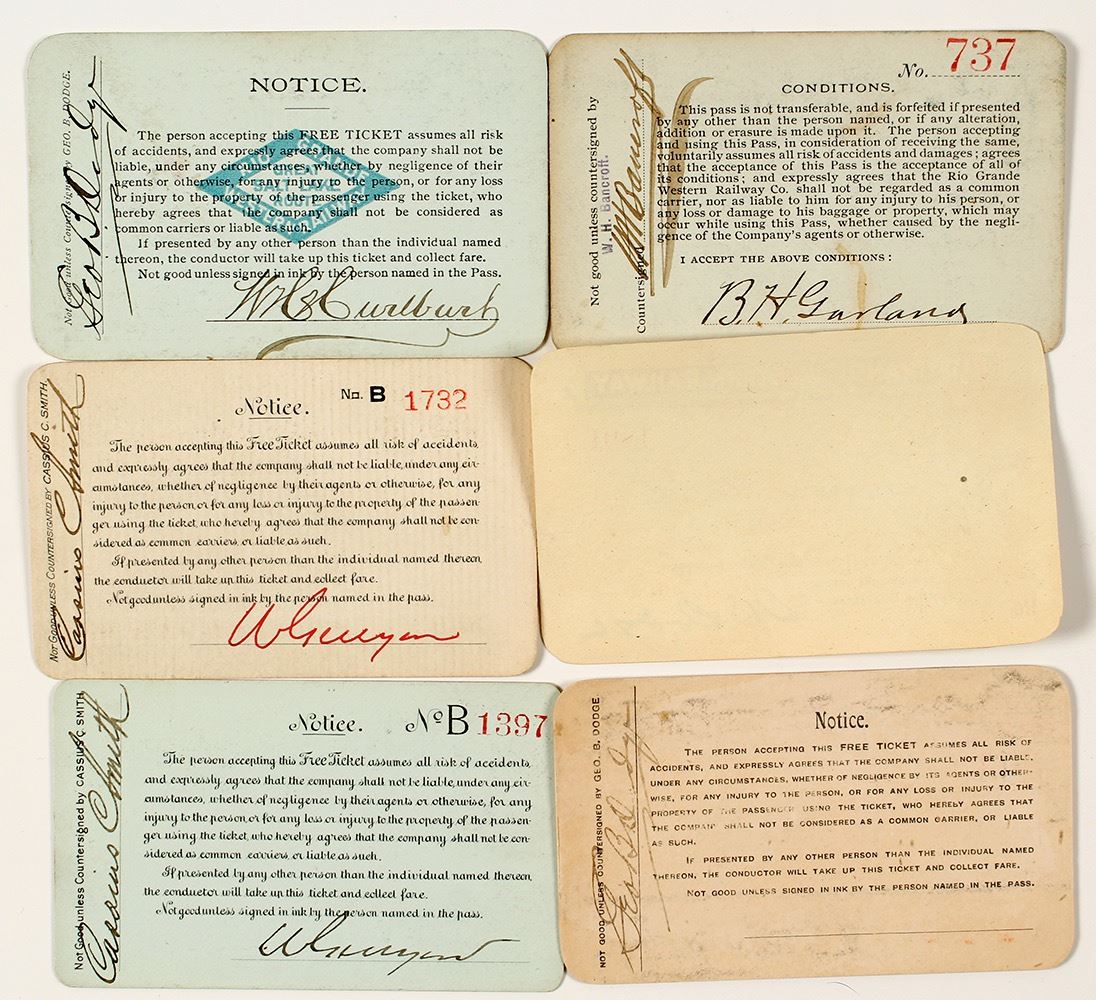 NOTICE.
The person accepting this FREE TICKET assumes all risk
of accidents, and expressly agrees that the company shall not be
liable, under any circumstances, whether by negligence of their
agents or otherwise, for any injury to the person, or for any loss
or injury to the property of the passenger using the ticket, who
hereby agrees that the company shall not be considered as
common carriers or liable as such.
If presented by any other person than the individual named
thereon, the conductor will take up this ticket and collect fare.
Not good unless signed in ink by the person named in the Pass.
Not Good unless Countersigned by GEO. B. DODGE.
Geo B Dodge
RIO GRANDE
GREAT
SALT LAKE
ROUTE
WESTERN RAILWAY
No. 737
CONDITIONS.
This pass is not transferable, and is forfeited if presented
by any other than the person named, or if any alteration,
addition or erasure is made upon it. The person accepting
and using this Pass, in consideration of receiving the same,
voluntarily assumes all risk of accidents and damages; agrees
that the acceptance of this Pass is the acceptance of all of
its conditions; and expressly agrees that the Rio Grande
Western Railway Co. shall not be regarded as a common
carrier, nor as liable to him for any injury to his person, or
any loss or damage to his baggage or property, which may
occur while using this Pass, whether caused by the negli-
gence of the Company's agents or otherwise.
I ACCEPT THE ABOVE CONDITIONS:
B. H. Garland
Not good unless countersigned by
W. H. Bancroft.
Countersigned
W H Bancroft
Notice.
No. B 1732
The person accepting this Free Ticket assumes all risk of accidents,
and expressly agrees that the company shall not be liable, under any cir-
cumstances, whether of negligence by their agents or otherwise, for any
injury to the person or for any loss or injury to the property of the passen-
ger using the ticket, who hereby agrees that the company shall not be con-
sidered as common carriers, or liable as such.
If presented by any other person than the individual named thereon,
the conductor will take up this ticket and collect fare.
Not good unless signed in ink by the person named in the pass.
NOT GOOD UNLESS COUNTERSIGNED BY CASSIUS C. SMITH.
Cassius C Smith
Notice.
No B 1397
The person accepting this Free Ticket assumes all risk of accidents,
and expressly agrees that the company shall not be liable, under any cir-
cumstances, whether of negligence by their agents or otherwise, for any
injury to the person or for any loss or injury to the property of the passen-
ger using the ticket, who hereby agrees that the company shall not be con-
sidered as common carriers, or liable as such.
If presented by any other person than the individual named thereon,
the conductor will take up this ticket and collect fare.
Not good unless signed in ink by the person named in the pass.
Not Good unless Countersigned by CASSIUS C. SMITH.
Cassius C Smith
Notice.
THE PERSON ACCEPTING THIS FREE TICKET ASSUMES ALL RISK OF
ACCIDENTS, AND EXPRESSLY AGREES THAT THE COMPANY SHALL NOT BE LIABLE,
UNDER ANY CIRCUMSTANCES, WHETHER OF NEGLIGENCE BY ITS AGENTS OR OTHER-
WISE, FOR ANY INJURY TO THE PERSON, OR FOR ANY LOSS OR INJURY TO THE
PROPERTY OF THE PASSENGER USING THE TICKET, WHO HEREBY AGREES THAT
THE COMPANY SHALL NOT BE CONSIDERED AS A COMMON CARRIER, OR LIABLE
AS SUCH.
IF PRESENTED BY ANY OTHER PERSON THAN THE INDIVIDUAL NAMED
THEREON, THE CONDUCTOR WILL TAKE UP THIS TICKET AND COLLECT FARE.
NOT GOOD UNLESS SIGNED IN INK BY THE PERSON NAMED IN THE PASS.
NOT GOOD UNLESS COUNTERSIGNED BY GEO. B. DODGE.
Geo B Dodge